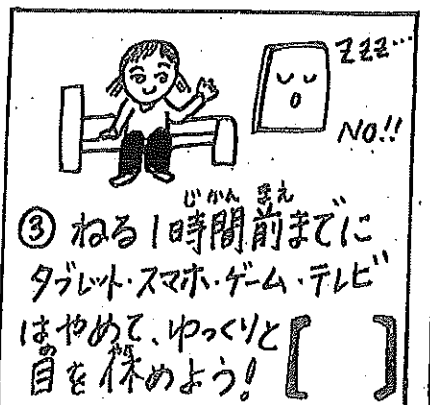 ZZZ…
NO!!
③ ねる1時間前までに
じかん まえ
タブレット・スマホ・ゲーム・テレビ
はやめて、ゆっくりと
目を休めよう!
[ ]